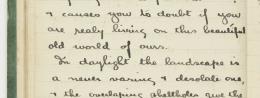 & causes you to doubt if you
are realy living on this beautiful
old world of ours.
In daylight the landscape is
a never varing & desolate one,
& the overlaping shellholes give the